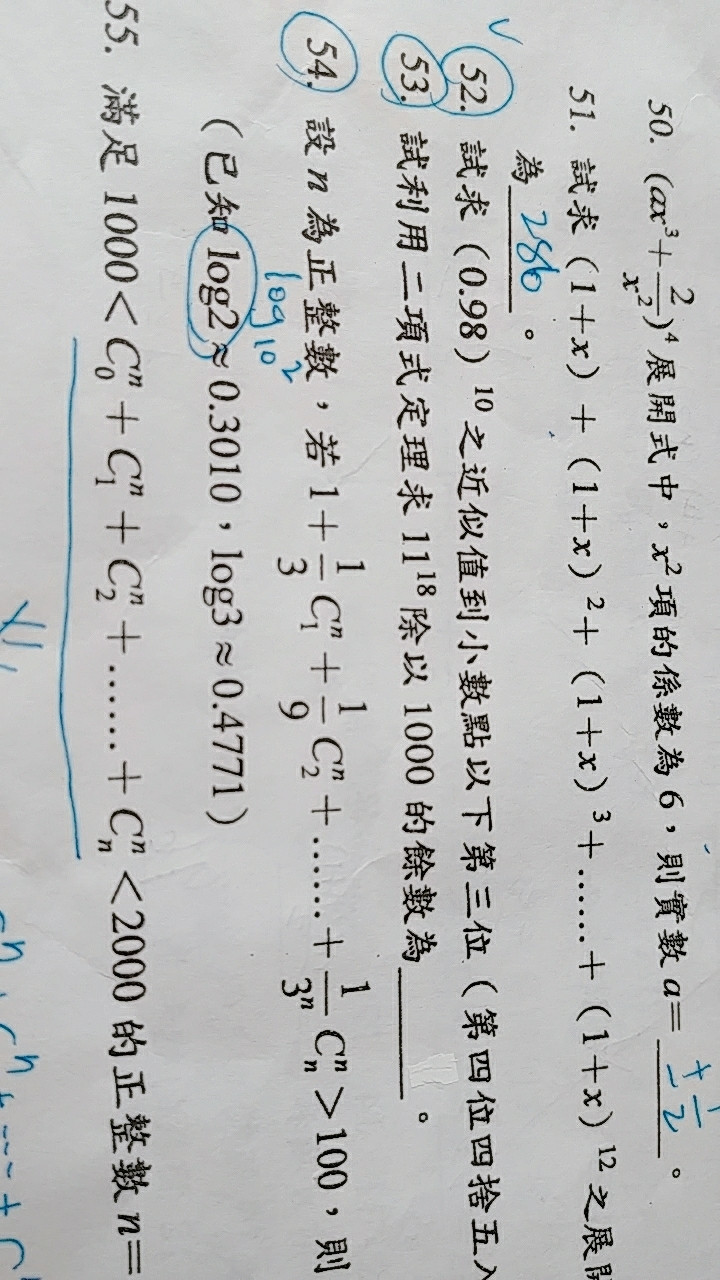 50. (ax³+2/x²)⁴展開式中，x²項的係數為6，則實數a= ±1/2 。
51. 試求（1+x）+（1+x）²+（1+x）³+……+（1+x）¹²之展開
為 286 。
52. 試求（0.98）¹⁰之近似值到小數點以下第三位（第四位四捨五入
53. 試利用二項式定理求11¹⁸除以1000的餘數為______。
54. 設n為正整數，若1+1/3 C₁ⁿ+1/9 C₂ⁿ+……+1/3ⁿ Cₙⁿ>100，則
log₁₀2
（已知log2≈0.3010，log3≈0.4771）
55. 滿足1000<C₀ⁿ+C₁ⁿ+C₂ⁿ+……+Cₙⁿ<2000的正整數n=